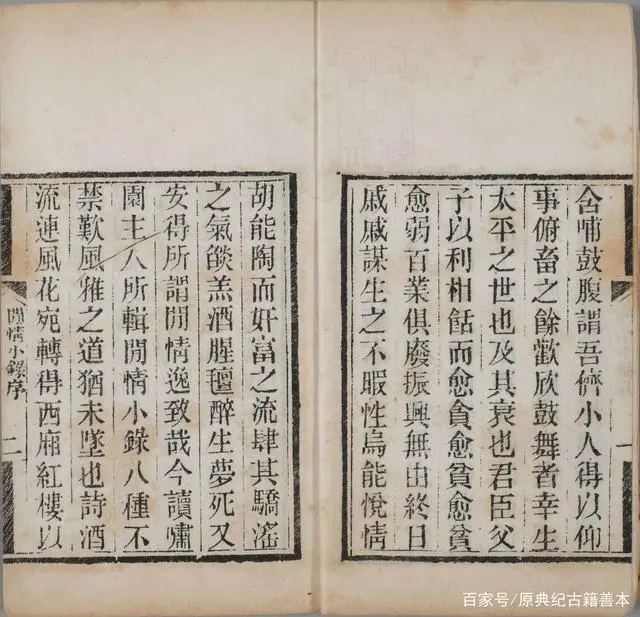 含哺鼓腹謂吾儕小人得以仰
事俯畜之餘歡欣鼓舞者幸生
太平之世也及其衰也君臣父
子以利相餂而愈貪愈貧愈貧
愈弱百業俱廢振興無由終日
戚戚謀生之不暇性烏能悅情
胡能陶而奸富之流肆其驕滛
之氣燄羔酒腥羶醉生夢死又
安得所謂閒情逸致哉今讀嘯
園主人所輯閒情小錄八種不
禁歎風雅之道猶未墜也詩酒
流連風花宛轉得西廂紅樓以
閒情小錄序
二
百家号/原典纪古籍善本